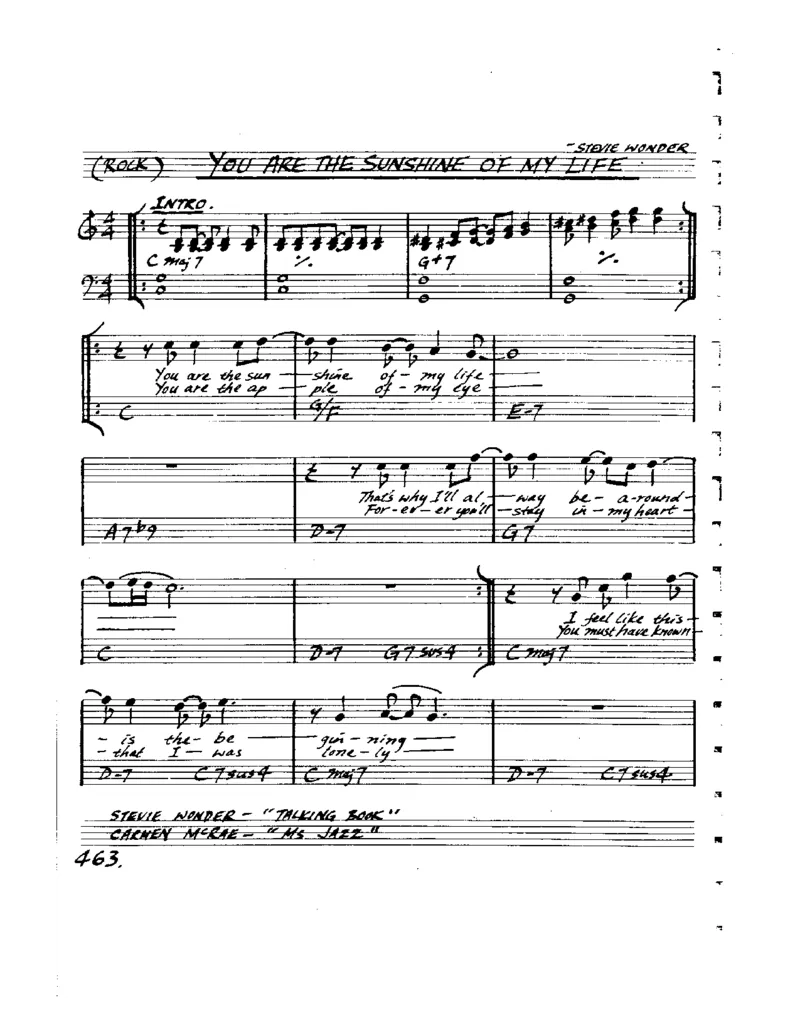 - STEVIE WONDER
(ROCK) YOU ARE THE SUNSHINE OF MY LIFE
INTRO.
4/4
C maj7 ⁒ G+7 ⁒
4/4
You are the sun - shine of - my life
You are the ap - ple of - my eye
C G/F E-7
That's why I'll al - way be - a-round -
For-er-er you'll - stay in - my heart -
A7b9 D-7 G7
I feel like this -
You must have known -
C D-7 G7sus4 C maj7
- is the- be gin - ning
- that I - was lone - ly
D-7 C7sus4 C maj7 D-7 C7sus4
STEVIE WONDER - "TALKING BOOK"
CARMEN McRAE - "MS JAZZ"
463.